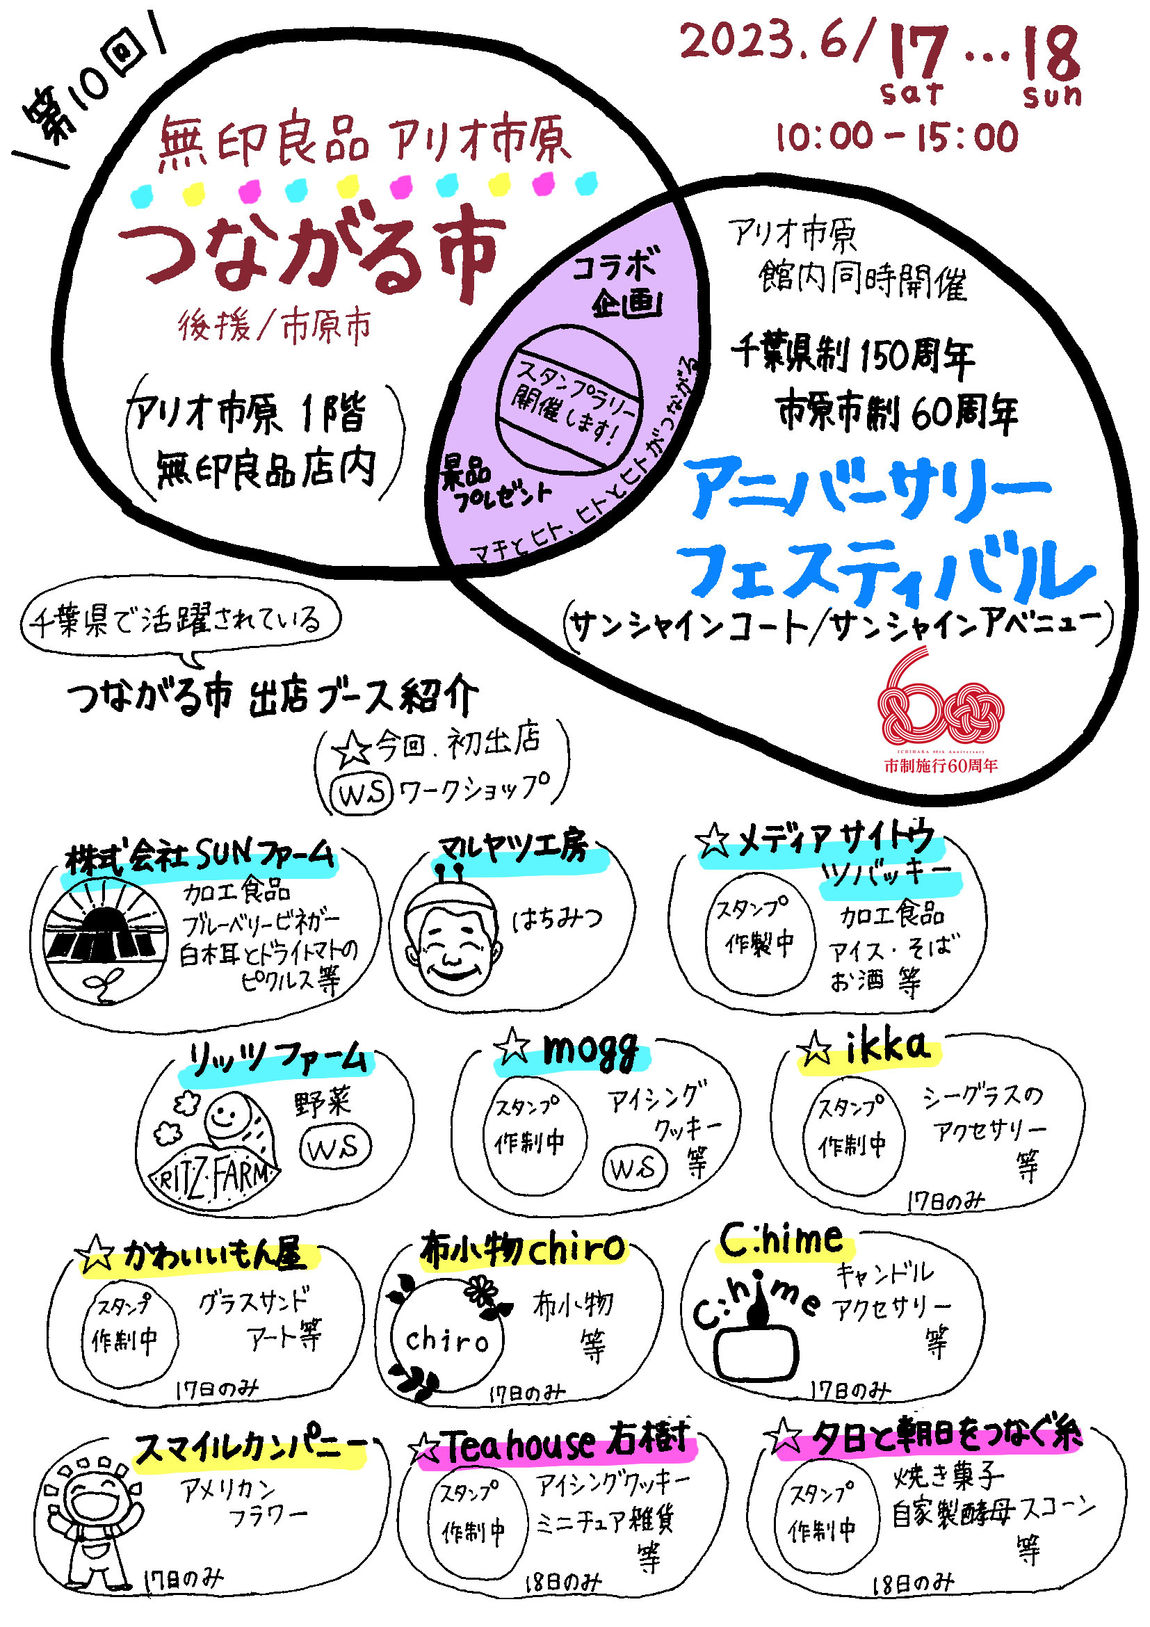 第10回
2023.6/17…18
sat sun
10:00-15:00
無印良品 アリオ市原
つながる市
後援/市原市
アリオ市原 1階
無印良品店内
コラボ
企画
スタンプラリー
開催します!
景品
プレゼント
マチとヒト、ヒトとヒトがつながる
アリオ市原
館内同時開催
千葉県制150周年
市原市制60周年
アニバーサリー
フェスティバル
(サンシャインコート/サンシャインアベニュー)
60
ICHIHARA 60th Anniversary
市制施行60周年
千葉県で活躍されている
つながる市 出店ブース紹介
☆今回、初出店
WS ワークショップ
株式会社SUNファーム
加工食品
ブルーベリービネガー
白木耳とドライトマトの
ピクルス等
マルヤツ工房
はちみつ
☆メディアサイトウ
ツバッキー
スタンプ
作製中
加工食品
アイス・そば
お酒 等
リッツファーム
野菜
WS
RITZ・FARM
☆mogg
スタンプ
作制中
アイシング
クッキー
等
WS
☆ikka
スタンプ
作制中
シーグラスの
アクセサリー
等
17日のみ
☆かわいいもん屋
スタンプ
作制中
グラスサンド
アート等
17日のみ
布小物chiro
chiro
布小物
等
17日のみ
C:hime
C:hime
キャンドル
アクセサリー
等
17日のみ
スマイルカンパニー
アメリカン
フラワー
17日のみ
☆Teahouse 右樹
スタンプ
作制中
アイシングクッキー
ミニチュア雑貨
等
18日のみ
☆夕日と朝日をつなぐ糸
スタンプ
作制中
焼き菓子
自家製酵母スコーン
等
18日のみ